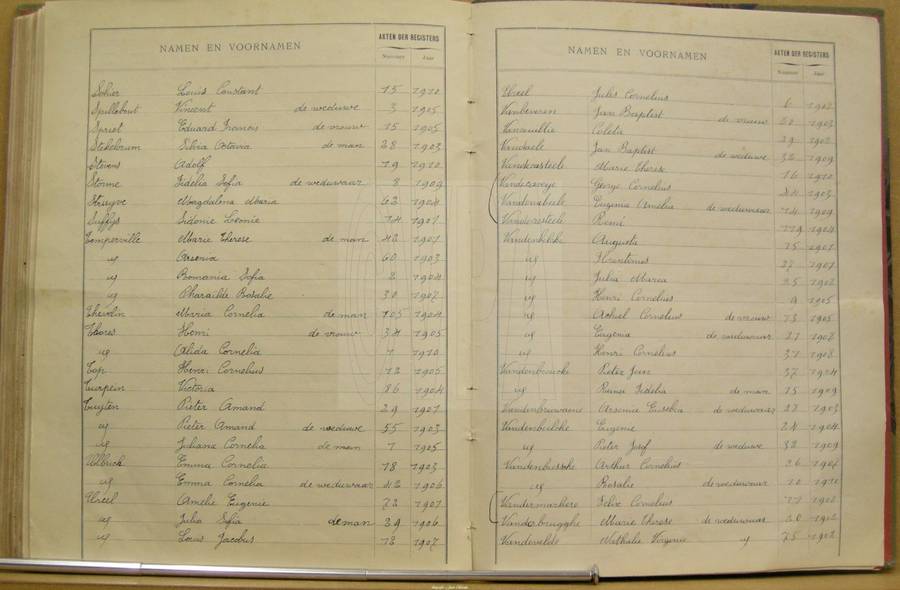 NAMEN EN VOORNAMEN AKTEN DER REGISTERS
Nummer Jaar
Sohier Louis Constant 15 1910
Spillebout Vincent de weduwe 3 1905
Spriet Eduard de vrouw 15 1905
Silvia Octavia de man 28 1903
Stevens Adolf 19 1910
Storme Fidelia Sofia de weduwaar 8 1909
Struyve Magdalena Maria 62 1904
Suffys Sidonie Leonie 74 1901
Temperville Marie Therese de man 48 1901
ug Arsenia 60 1903
ug Romania Sofia 2 1904
ug Pharailde Rosalie 30 1907
Maria Cornelia de man 105 1904
Henri de vrouw 34 1905
ug Alida Cornelia 1 1910
Top Henri Cornelius 12 1905
Turpein Victoria 86 1904
Tuyten Pieter Amand 29 1901
ug Pieter Amand de weduwe 55 1903
ug Juliana Cornelia de man 1 1905
Ulbrick Emma Cornelia 18 1903
ug Emma Cornelia de weduwaar 42 1906
Ureel Amelie Eugenie 72 1901
ug Julia Sofia de man 29 1906
ug Louis Jacobus 12 1907
NAMEN EN VOORNAMEN AKTEN DER REGISTERS
Nummer Jaar
Ureel Jules Cornelius 6 1902
Vanbeveren Jan Baptist de vrouw 20 1903
Coleta 29 1902
Vandaele Jan Baptist de weduwe 32 1909
Vandecasteele Marie Therese 16 1910
George Cornelius 1903
Vandenabeele Eugenia Amelia de weduwaar 14 1909
Vanderesteele Remi 119 1904
Vandenbilcke Augusta 15 1901
ug Florentinus 1901
ug Julia Maria 25 1902
ug Henri Cornelius 9 1905
ug Achiel Cornelius de vrouw 13 1905
ug Eugenia de weduwaar 27 1908
ug Henri Cornelius 31 1908
Vandenbroucke Pieter Jan 37 1904
ug Fidelia de man 15 1909
Arsenia Eusebia de weduwaar 27 1903
Eugenie 24 1904
ug Pieter Josef de weduwe 32 1909
Vandenbussche Arthur Cornelius 26 1904
ug Rosalie de weduwaar 10 1910
Felix Cornelius 11 1902
Vanderbrugghe Marie Therese de weduwaar 20 1902
Vandevelde Nathalie Virginie ug 75 1902